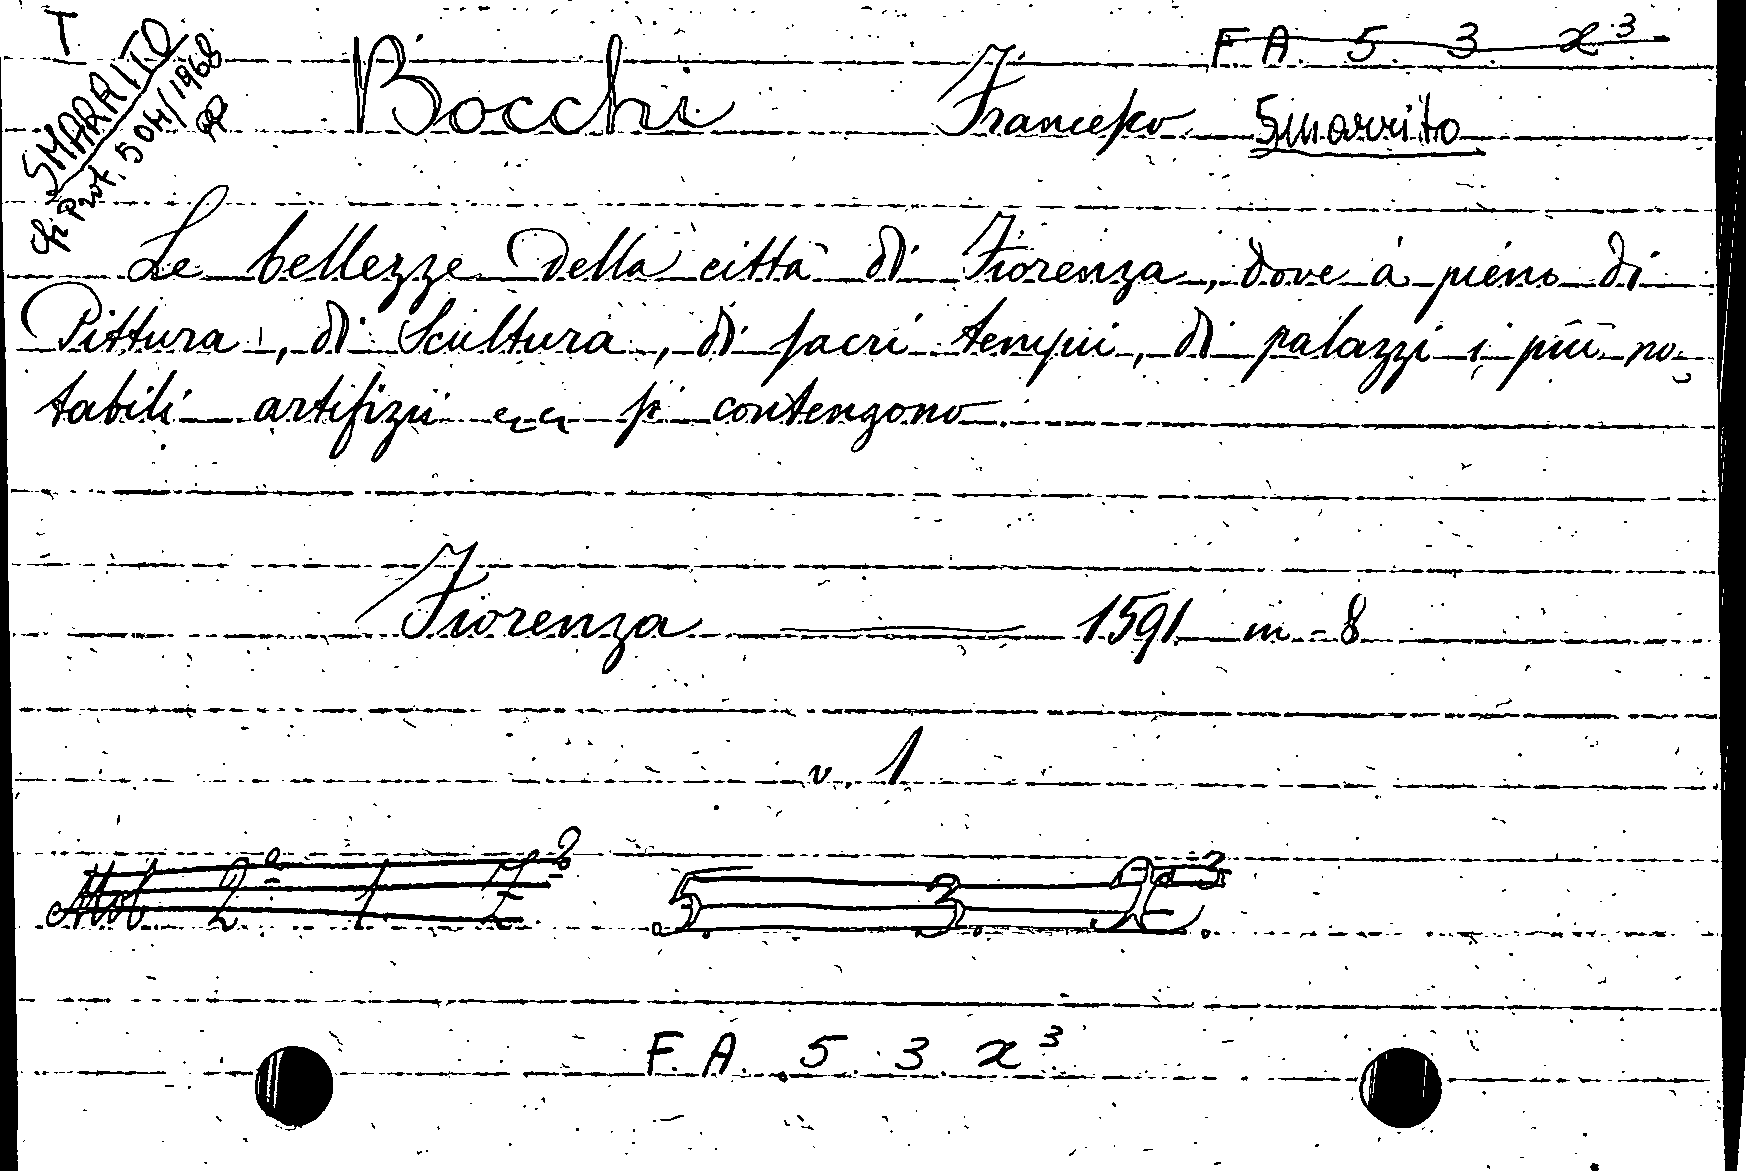 T
SMARRITO
Prot. 504/1968
F. A. 5 3 x³
Bocchi Francesco Smarrito
Le bellezze della città di Fiorenza, dove à pieno di
Pittura, di Scultura, di sacri tempii, di palazzi i più no-
tabili artifizii ecc si contengono
Fiorenza 1591 in-8
v. 1
Mob 2ª 1. Z² 5. 3. X³.
F. A. 5 3 x³